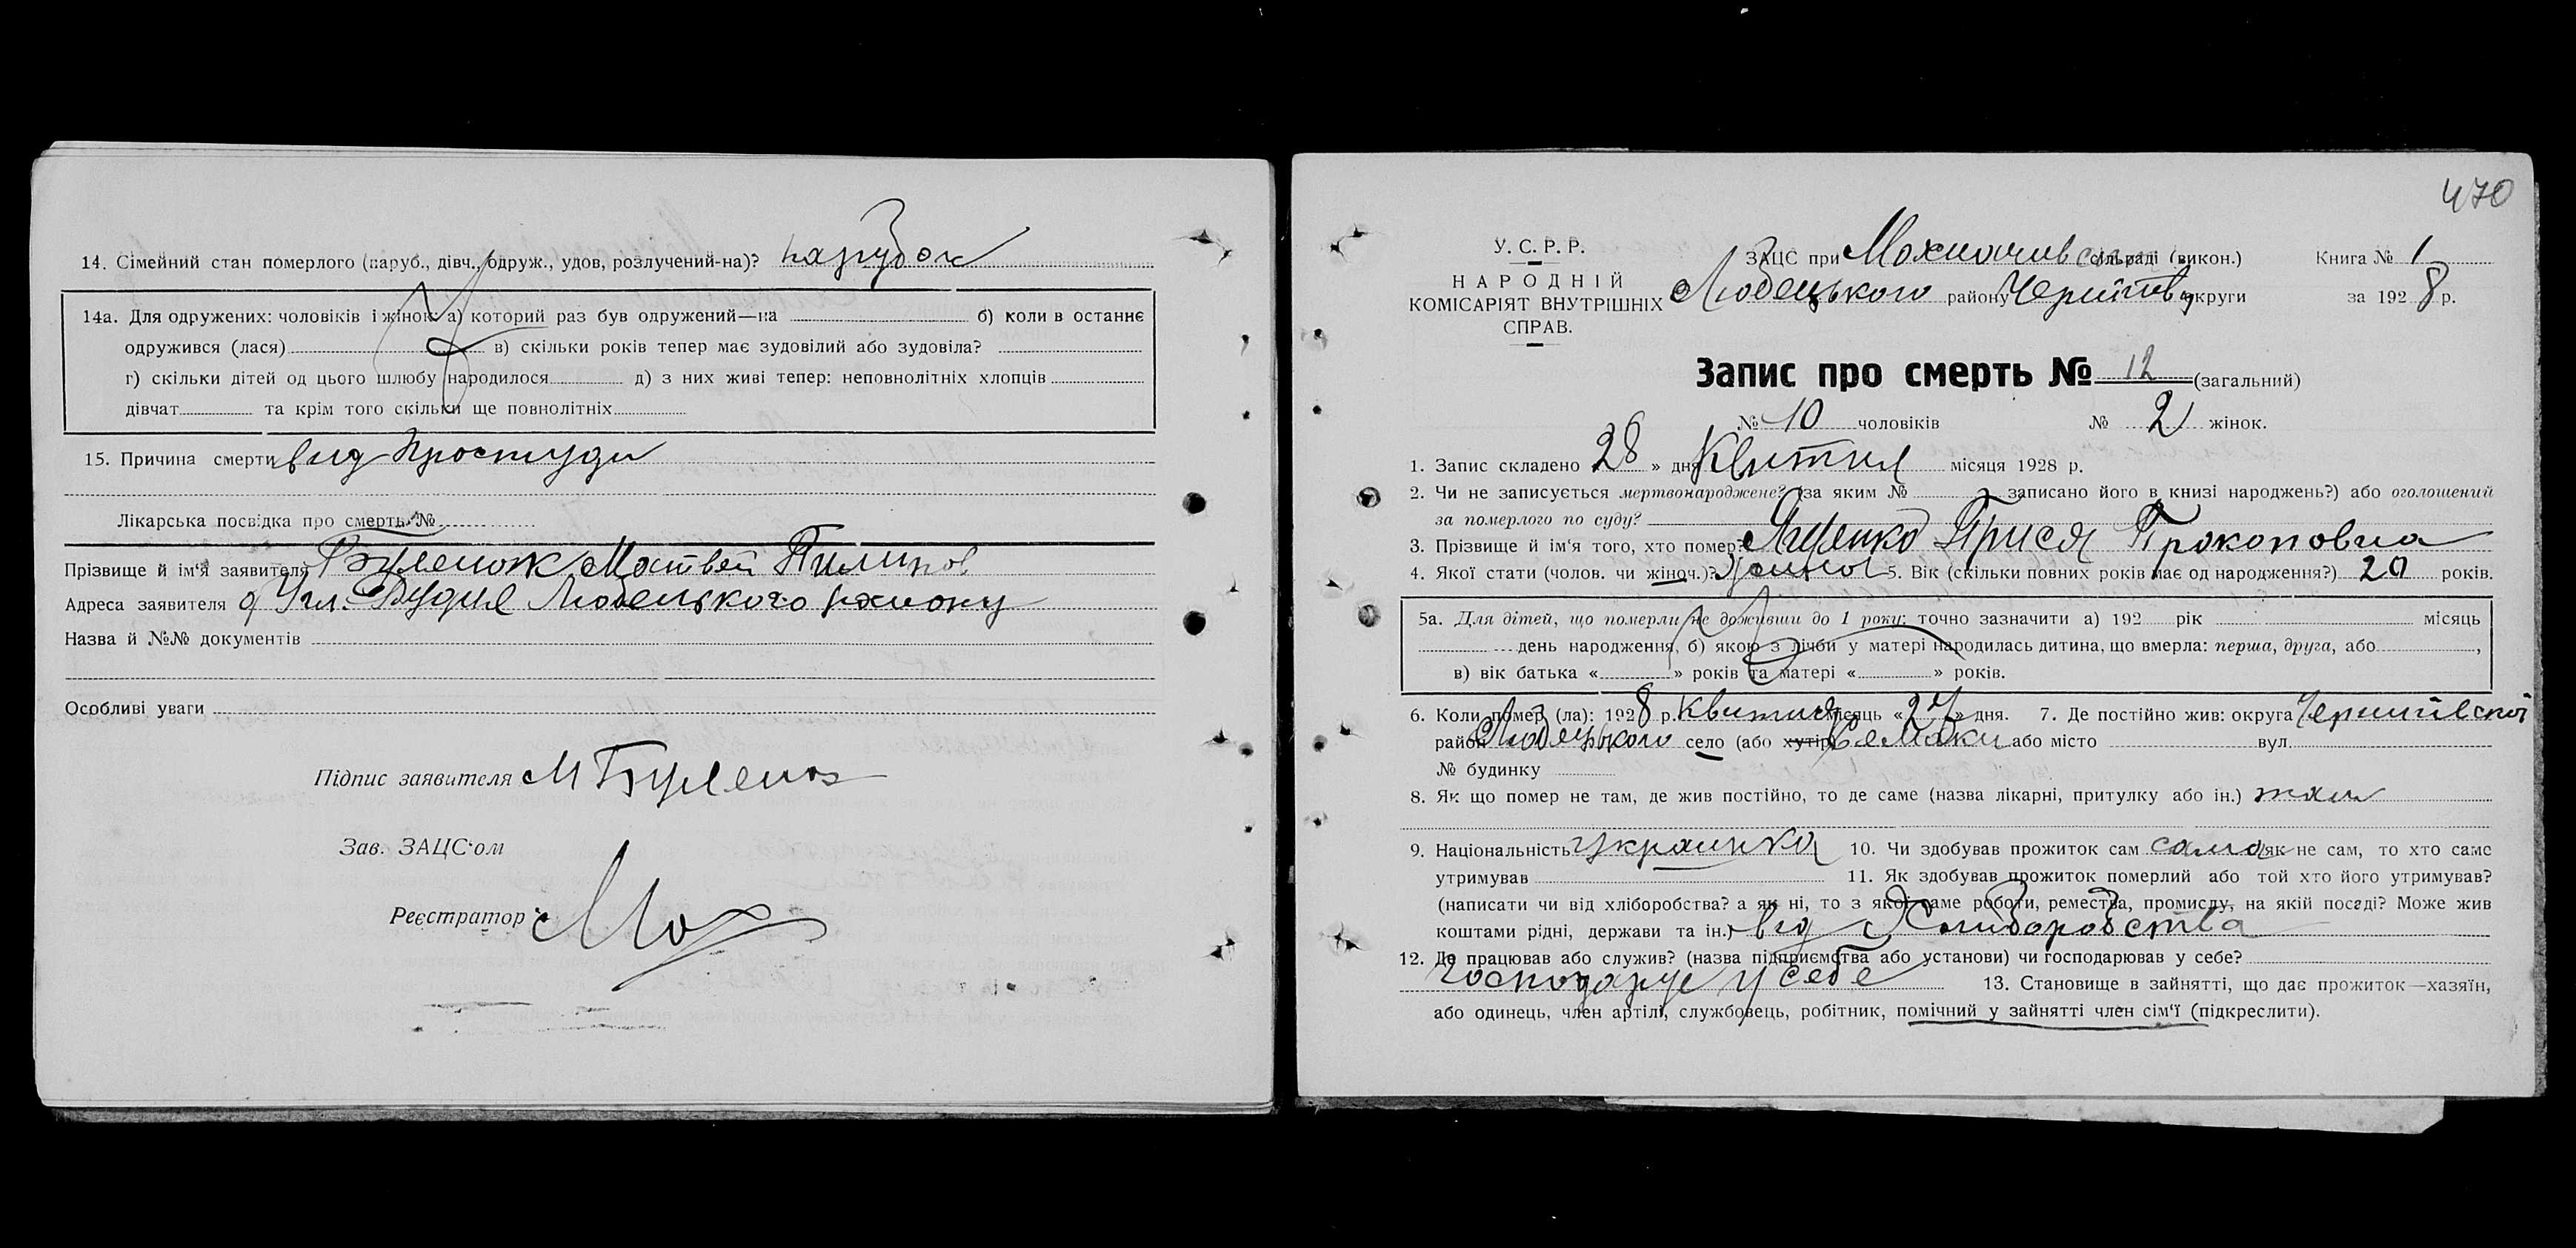 14. Сімейний стан померлого (паруб., дівч., одруж., удов, розлучений-на)? парубок
14а. Для одружених: чоловіків і жінок: а) которий раз був одружений—на б) коли в останнє
одружився (лася) в) скільки років тепер має зудовілий або зудовіла?
г) скільки дітей од цього шлюбу народилося д) з них живі тепер: неповнолітніх хлопців
дівчат та крім того скільки ще повнолітніх
15. Причина смерти вид Простуди
Лікарська посвідка про смерть №
Прізвище й ім'я заявителя Матвей Пилипов
Адреса заявителя Любецького району
Назва й №№ документів
Особливі уваги
Підпис заявителя М
Зав. ЗАЦС'ом
Реєстратор
470
У. С. Р. Р.
НАРОДНІЙ
КОМІСАРІЯТ ВНУТРІШНІХ
СПРАВ.
ЗАЦС при сільраді (викон.) Книга № 1
Любецького району Чернігів округи за 1928 р.
Запис про смерть № 12 (загальний)
№ 10 чоловіків № 2 жінок.
1. Запис складено 28 » дня Квитня місяця 1928 р.
2. Чи не записується мертвонароджене? (за яким № записано його в книзі народжень?) або оголошений
за померлого по суду?
3. Прізвище й ім'я того, хто помер? Ященко Прися Прокоповна
4. Якої стати (чолов. чи жіноч.)? 5. Вік (скільки повних років має од народження?) 20 років.
5а. Для дітей, що померли не доживши до 1 року: точно зазначити а) 192 рік місяць
день народження, б) якою з лічби у матері народилась дитина, що вмерла: перша, друга, або ,
в) вік батька « » років та матері « » років.
6. Коли помер (ла): 1928 р. Квитня місяць «27» дня. 7. Де постійно жив: округа
район Любецького село (або хутір) Семаки або місто вул.
№ будинку
8. Як що помер не там, де жив постійно, то де саме (назва лікарні, притулку або ін.) там
9. Національність украинка 10. Чи здобував прожиток сам сама як не сам, то хто саме
утримував 11. Як здобував прожиток померлий або той хто його утримував?
(написати чи від хліборобства? а як ні, то з якої саме роботи, ремества, промислу, на якій посаді? Може жив
коштами рідні, держави та ін.) від Хлиборобства
12. Де працював або служив? (назва підприємства або установи) чи господарював у себе?
господарує у себе 13. Становище в зайнятті, що дає прожиток—хазяїн,
або одинець, член артілі, службовець, робітник, помічний у зайнятті член сім'ї (підкреслити).